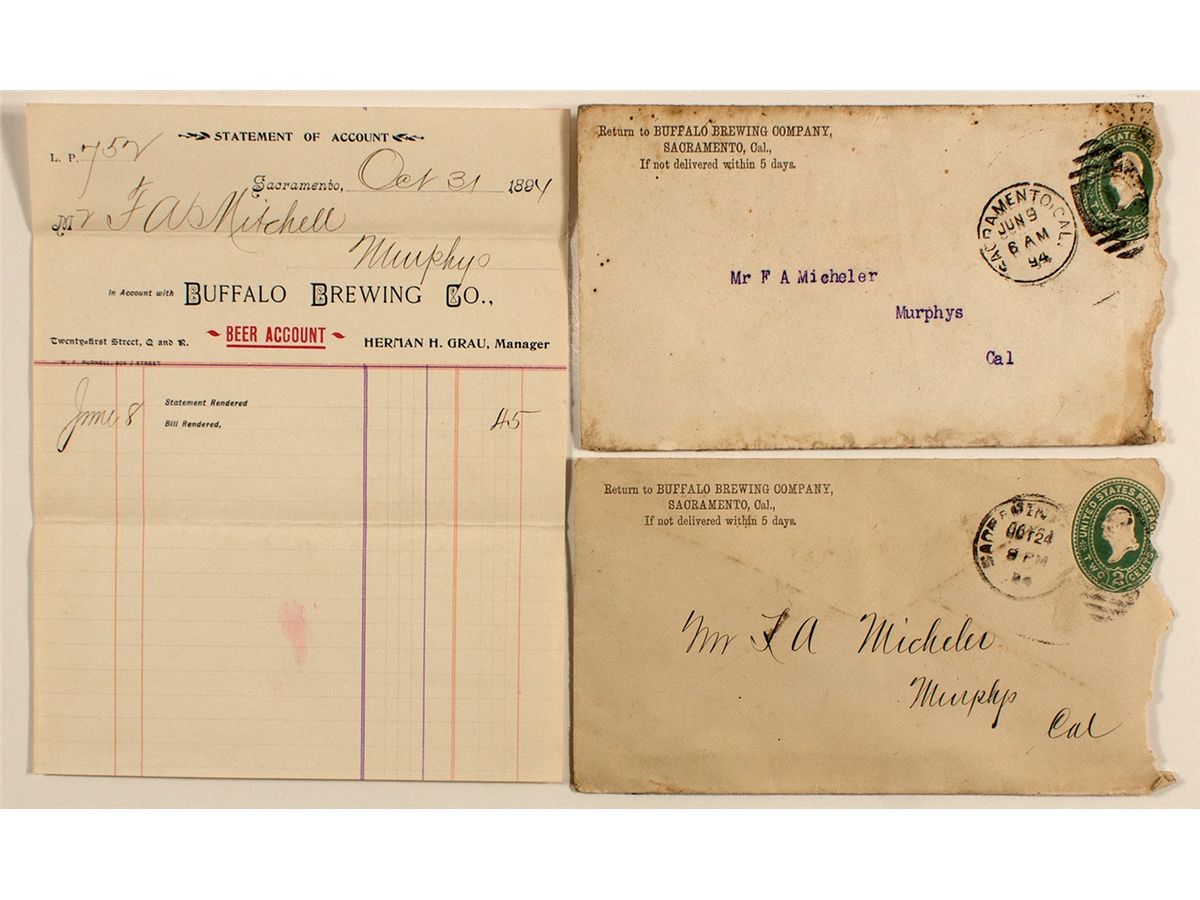 STATEMENT OF ACCOUNT
L. P. 752
Sacramento, Oct 31 1894
Mr F A Mitchell
Murphys
In Account with BUFFALO BREWING CO.,
BEER ACCOUNT
Twenty-first Street, Q and R. HERMAN H. GRAU, Manager
W. F. PURNELL, 609 J STREET
Statement Rendered
June 8 Bill Rendered, 45
Return to BUFFALO BREWING COMPANY,
SACRAMENTO, Cal.,
If not delivered within 5 days.
UNITED STATES
TWO
SACRAMENTO, CAL.
JUN 9
6 AM
94
Mr F A Micheler
Murphys
Cal
Return to BUFFALO BREWING COMPANY,
SACRAMENTO, Cal.,
If not delivered within 5 days.
OCT 24
8 PM
94
UNITED STATES POSTAGE
TWO 2 CENTS
Mr F A Micheler
Murphys
Cal